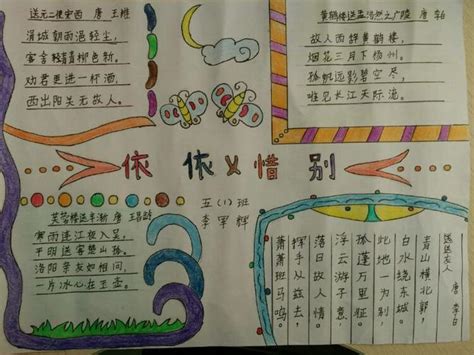 送元二使安西 唐 王维
渭城朝雨浥轻尘,
客舍青青柳色新。
劝君更进一杯酒,
西出阳关无故人。
黄鹤楼送孟浩然之广陵 唐 李白
故人西辞黄鹤楼,
烟花三月下杨州。
孤帆远影碧空尽,
唯见长江天际流。
依依惜别
五(1)班
芙蓉楼送辛渐 唐 王昌龄
寒雨连江夜入吴,
平明送客楚山孤。
洛阳亲友如相问,
一片冰心在玉壶。
送友人
唐 李白
青山横北郭,
白水绕东城。
此地一为别,
孤蓬万里征。
浮云游子意,
落日故人情。
挥手从兹去,
萧萧班马鸣。